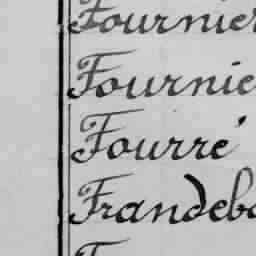 Fournier
Fournie
Fourré
Frandeb